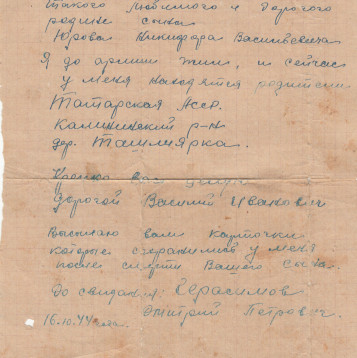 такого любимого и дорогого
родине сына
Юрова Никифора Васильевича
Я до армии жил, и сейчас
у меня находятся родители
Татарская Асср.
Калининский р-н
дер. Ташлиярка.
Крепко вам
дорогой Василий Иванович
Высылаю вам карточки
которые сохранились у меня
после смерти Вашего сына.
До свидан Герасимов
Дмитрий Петрович.
16.10.44